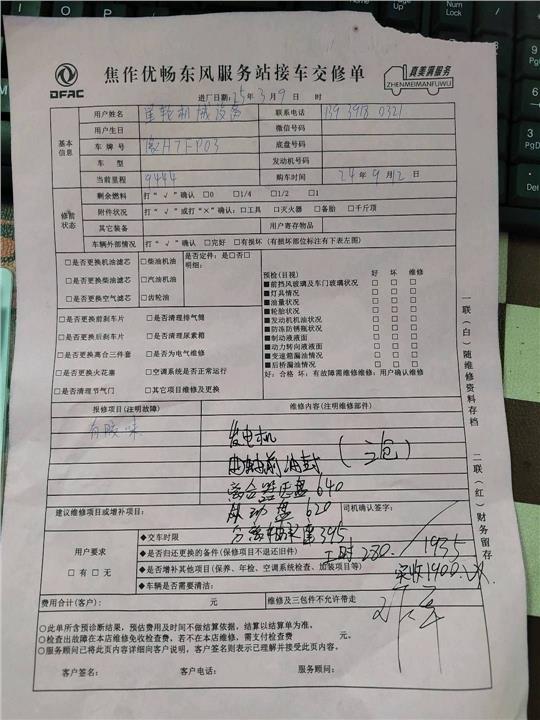 DFAC
焦作优畅东风服务站接车交修单
真美满服务
ZHENMEIMANFUWU
进厂日期: 25年3月9日 时
基本信息
用户姓名 机械设备 联系电话 139 3918 0321
用户生日 微信号码
车牌号 豫H71P03 底盘号码
车型 发动机号码
当前里程 9444 购车时间 24年9月12日
修前状态
剩余燃料 打“√”确认 □0 □1/4 □1/2 □1
附件状况 打“√”或打“×”确认:□工具 □灭火器 □备胎 □千斤顶
其它装备 用户寄存物品
车辆外部情况 打“√”确认 □完好 □有损坏(有损坏部位标注有下表左图)
□是否更换机油滤芯 □柴油机油 是否定件:是□否□
明细:
□是否更换柴油滤芯 □汽油机油
□是否更换空气滤芯 □齿轮油
□是否更换前刹车片 □是否清理排气筒
□是否更换后刹车片 □是否清理尿素箱
□是否更换离合三件套 □是否为电气维修
□是否更换火花塞 □空调系统是否正常运行
□是否清理节气门 □其它项目维修及更换
预检(目视) 好 坏 维修
■前挡风玻璃及车门玻璃状况 □ □ □
■灯具情况 □ □ □
■油量状况 □ □ □
■轮胎状况 □ □ □
■发动机机油状况 □ □ □
■防冻防锈瓶状况 □ □ □
■制动液液面 □ □ □
■动力转向液液面 □ □ □
■变速箱漏油情况 □ □ □
■后桥漏油情况 □ □ □
好:合格 坏:有故障需维修维修:用户确认维修
报修项目(注明故障) 维修内容(注明维修部件)
有胶味
发电机
曲轴前油封 (三包)
离合器压盘 640
从动盘 620
分离轴承 395
建议维修项目或增补项目: 司机确认签字:
工时280. 1935
实收1900.
用户要求
□有 □无
◆交车时限
◆是否归还更换的备件(保修项目不退还旧件)
◆是否增补其他项目(保养、年检、空调系统检查、加装项目等)
◆车辆是否需要清洁:
费用合计(客户): 元 维修及三包件不允许带走
○此单所含预诊断结果,预估费用及时间不做结算依据,结算以结算单为准。
○检查出故障在本店维修免收检查费,若不在本店维修、需支付检查费 元。
○服务顾问已将此页内容详细向客户说明,客户签名则表示已理解并接受此页内容。
客户签名: 客户电话: 服务顾问:
一联(白)随维修资料存档
二联(红)财务留存